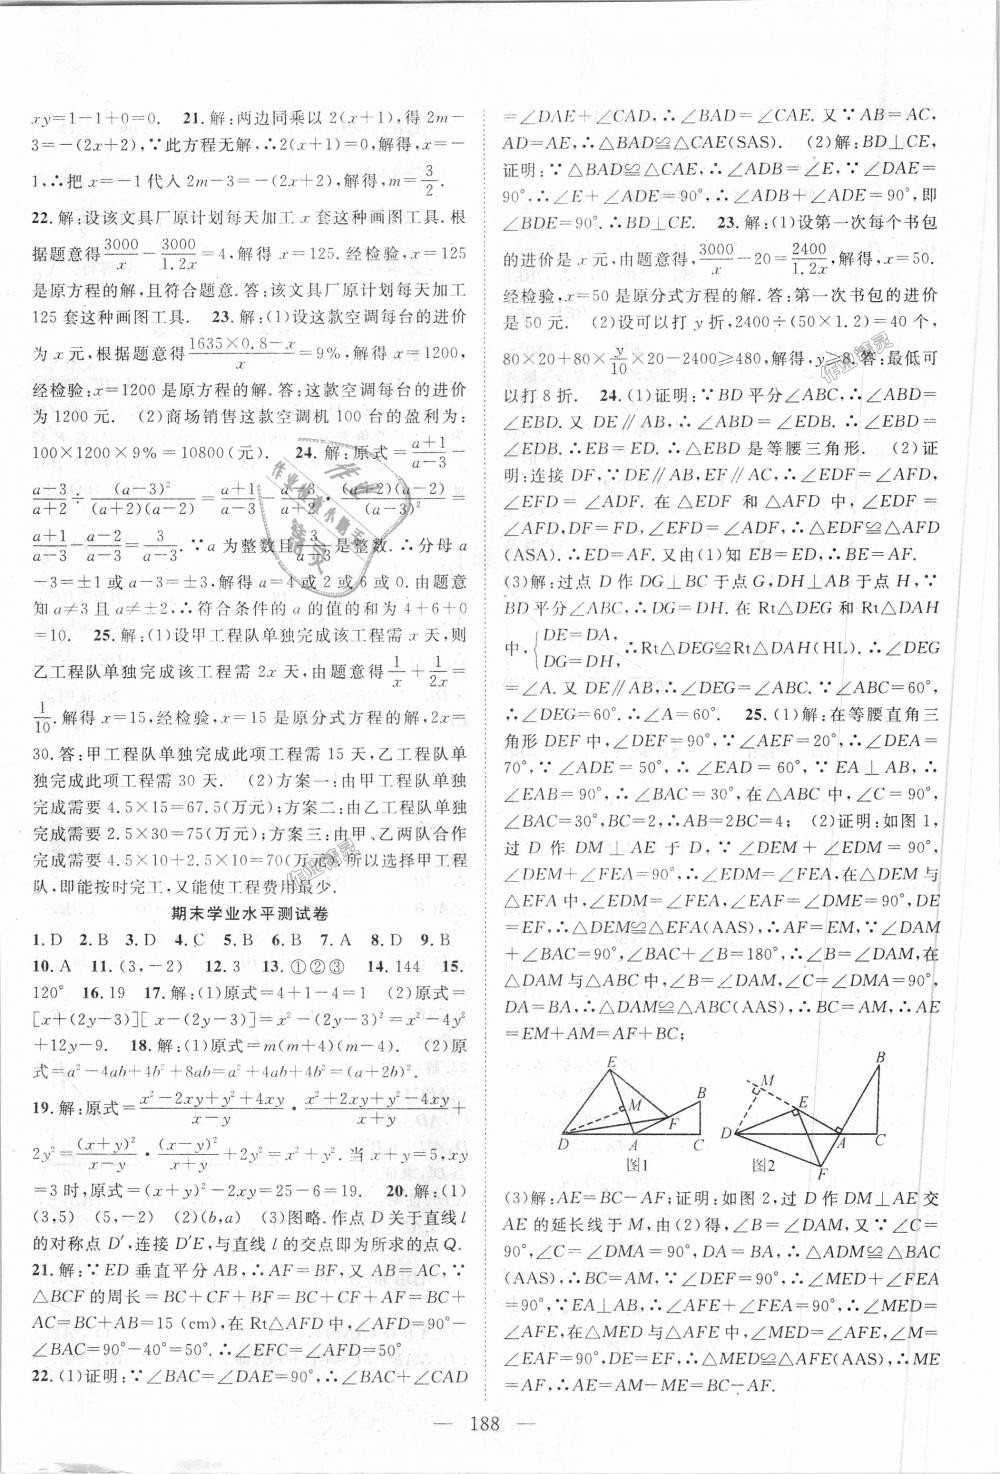 xy=1-1+0=0. 21.解:两边同乘以2(x+1),得2m-
3=-(2x+2),∵此方程无解,∴2(x+1)=0,解得,x=-
1,∴把x=-1代入2m-3=-(2x+2),解得,m=3/2.
22.解:设该文具厂原计划每天加工x套这种画图工具.根
据题意得3000/x-3000/1.2x=4,解得x=125.经检验,x=125
是原方程的解,且符合题意.答:该文具厂原计划每天加工
125套这种画图工具. 23.解:(1)设这款空调每台的进价
为x元,根据题意得(1635×0.8-x)/x=9%,解得x=1200,
经检验:x=1200是原方程的解.答:这款空调每台的进价
为1200元. (2)商场销售这款空调机100台的盈利为:
100×1200×9%=10800(元). 24.解:原式=(a+1)/(a-3)-
(a-3)/(a+2)÷(a-3)²/((a+2)(a-2))=(a+1)/(a-3)-(a-3)/(a+2)·((a+2)(a-2))/(a-3)²=
(a+1)/(a-3)-(a-2)/(a-3)=3/(a-3).∵a为整数且3/(a-3)是整数.∴分母a
-3=±1或a-3=±3,解得a=4或2或6或0.由题意
知a≠3且a≠±2,∴符合条件的a的值的和为4+6+0
=10. 25.解:(1)设甲工程队单独完成该工程需x天,则
乙工程队单独完成该工程需2x天,由题意得1/x+1/2x=
1/10.解得x=15,经检验,x=15是原分式方程的解,2x=
30.答:甲工程队单独完成此项工程需15天,乙工程队单
独完成此项工程需30天. (2)方案一:由甲工程队单独
完成需要4.5×15=67.5(万元);方案二:由乙工程队单独
完成需要2.5×30=75(万元);方案三:由甲、乙两队合作
完成需要4.5×10+2.5×10=70(万元).所以选择甲工程
队,即能按时完工,又能使工程费用最少.
期末学业水平测试卷
1.D 2.B 3.D 4.C 5.B 6.B 7.A 8.D 9.B
10.A 11.(3,-2) 12.3 13.①②③ 14.144 15.
120° 16.19 17.解:(1)原式=4+1-4=1 (2)原式=
[x+(2y-3)][x-(2y-3)]=x²-(2y-3)²=x²-4y²
+12y-9. 18.解:(1)原式=m(m+4)(m-4). (2)原
式=a²-4ab+4b²+8ab=a²+4ab+4b²=(a+2b)².
19.解:原式=(x²-2xy+y²+4xy)/(x-y)·(x²+2xy+y²-4xy)/(x+y)+
2y²=(x+y)²/(x-y)·(x-y)²/(x+y)+2y²=x²+y².当x+y=5,xy
=3时,原式=(x+y)²-2xy=25-6=19. 20.解:(1)
(3,5) (5,-2) (2)(b,a) (3)图略.作点D关于直线l
的对称点D′,连接D′E,与直线l的交点即为所求的点Q.
21.解:∵ED垂直平分AB,∴AF=BF,又AB=AC,∵
△BCF的周长=BC+CF+BF=BC+CF+AF=BC+
AC=BC+AB=15(cm),在Rt△AFD中,∠AFD=90°-
∠BAC=90°-40°=50°.∴∠EFC=∠AFD=50°
22.(1)证明:∵∠BAC=∠DAE=90°,∴∠BAC+∠CAD
=∠DAE+∠CAD,∴∠BAD=∠CAE.又∵AB=AC,
AD=AE,∴△BAD≌△CAE(SAS). (2)解:BD⊥CE,
证明:∵△BAD≌△CAE,∴∠ADB=∠E,∵∠DAE=
90°,∴∠E+∠ADE=90°,∴∠ADB+∠ADE=90°,即
∠BDE=90°.∴BD⊥CE. 23.解:(1)设第一次每个书包
的进价是x元,由题意得,3000/x-20=2400/1.2x,解得,x=50.
经检验,x=50是原分式方程的解.答:第一次书包的进价
是50元. (2)设可以打y折,2400÷(50×1.2)=40个,
80×20+80×y/10×20-2400≥480,解得,y≥8.答:最低可
以打8折. 24.(1)证明:∵BD平分∠ABC,∴∠ABD=
∠EBD.又DE∥AB,∴∠ABD=∠EDB.∴∠EBD=
∠EDB.∴EB=ED.∴△EBD是等腰三角形. (2)证
明:连接DF,∵DE∥AB,EF∥AC,∴∠EDF=∠AFD,
∠EFD=∠ADF.在△EDF和△AFD中,∠EDF=
∠AFD,DF=FD,∠EFD=∠ADF,∴△EDF≌△AFD
(ASA).∴ED=AF.又由(1)知EB=ED,∴BE=AF.
(3)解:过点D作DG⊥BC于点G,DH⊥AB于点H,∵
BD平分∠ABC,∴DG=DH.在Rt△DEG和Rt△DAH
中,{DE=DA,DG=DH,∴Rt△DEG≌Rt△DAH(HL).∴∠DEG
=∠A.又DE∥AB,∴∠DEG=∠ABC.∵∠ABC=60°,
∴∠DEG=60°.∴∠A=60°. 25.(1)解:在等腰直角三
角形DEF中,∠DEF=90°,∵∠AEF=20°,∴∠DEA=
70°,∵∠ADE=50°,∴∠EAD=60°,∵EA⊥AB,∴
∠EAB=90°,∴∠BAC=30°,在△ABC中,∠C=90°,
∠BAC=30°,BC=2,∴AB=2BC=4; (2)证明:如图1,
过D作DM⊥AE于D,∴∠DEM+∠EDM=90°,
∠DEM+∠FEA=90°,∴∠EDM=∠FEA,在△DEM与
△EFA中,∠EDM=∠FEA,∠EAF=∠DME=90°,DE
=EF,∴△DEM≌△EFA(AAS),∴AF=EM,∵∠DAM
+∠BAC=90°,∠BAC+∠B=180°,∴∠DAM=∠B,在
△DAM与△ABC中,∠DAM=∠B,∠C=∠DMA=90°,
DA=BA,∴△DAM≌△ABC(AAS),∴BC=AM,∴AE
=EM+AM=AF+BC;
E
B
M
F
D A C
图1
B
M
E
D A C
F
图2
(3)解:AE=BC-AF;证明:如图2,过D作DM⊥AE交
AE的延长线于M,由(2)得,∠B=∠DAM,又∵∠BAC
=90°,∠C=∠DMA=90°,DA=BA,∴△ADM≌△BAC
(AAS):∴BC=AM,∵∠DEF=90°,∴∠MED+∠FEA=
90°,∵EA⊥AB,∴∠AFE+∠FEA=90°,∴∠MED=
∠AFE,在△MED与△AFE中,∠MED=∠AFE,∠M=
∠EAF=90°,DE=EF,∴△MED≌△AFE(AAS),∴ME
=AF,∴AE=AM-ME=BC-AF.
— 188 —